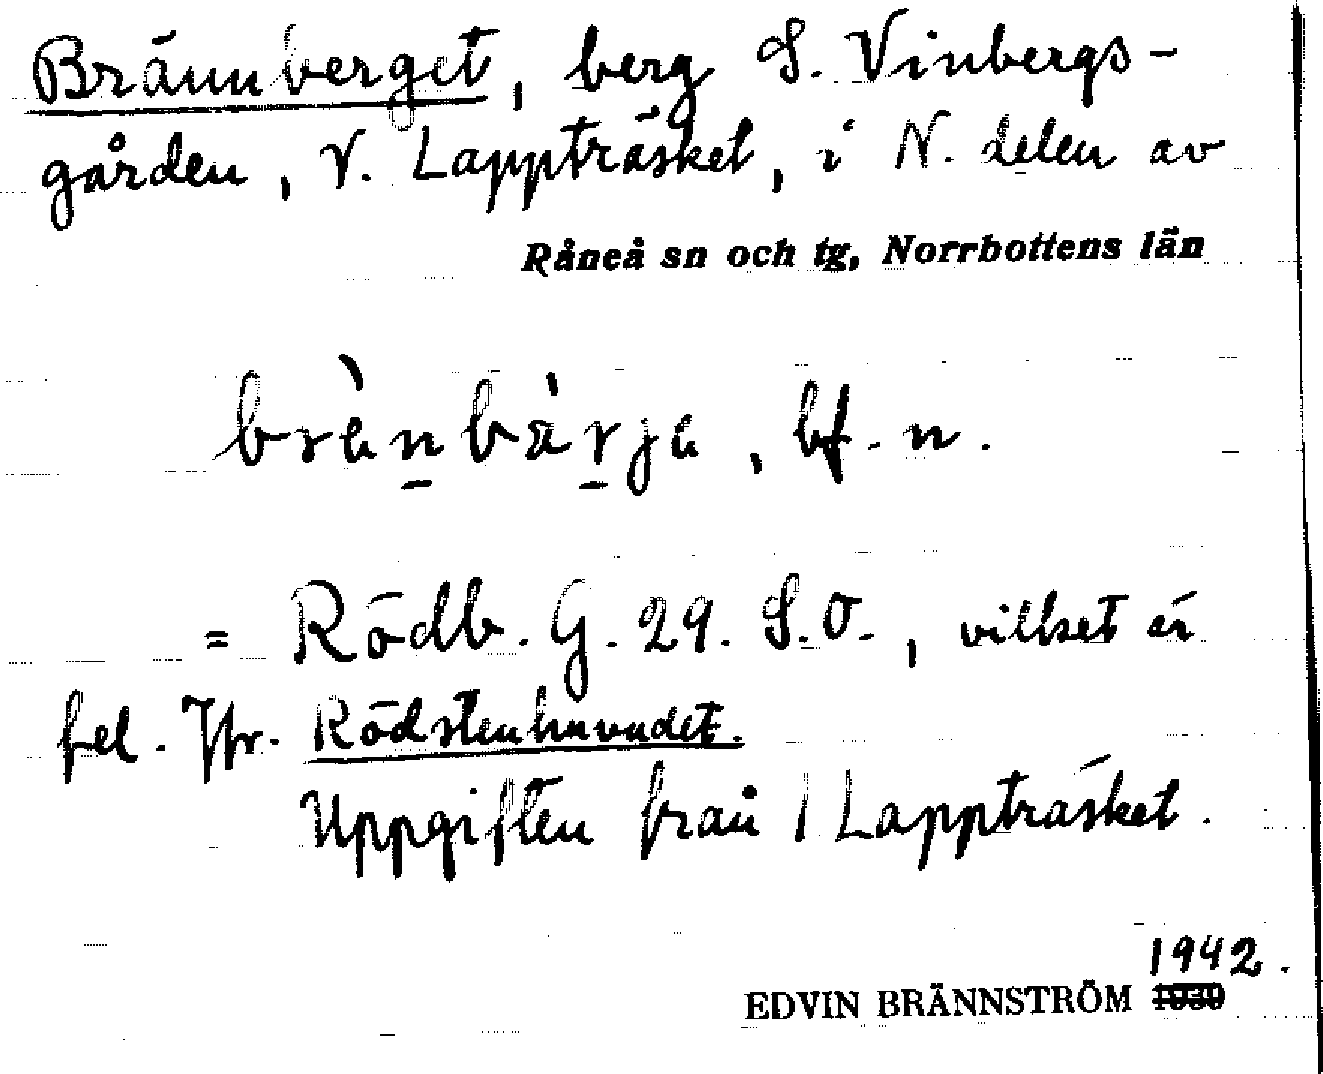 Brännberget, berg S. Vinbergs-
gården, V. Lappträsket, i N. delen av
Råneå sn och tg, Norrbottens län
brànbàrja, bf. n.
= Rödb. G. 29. S.O., vilket är
fel. Jfr. Rödstenhuvudet.
Uppgiften från 1 Lappträsket.
1942.
EDVIN BRÄNNSTRÖM 1939